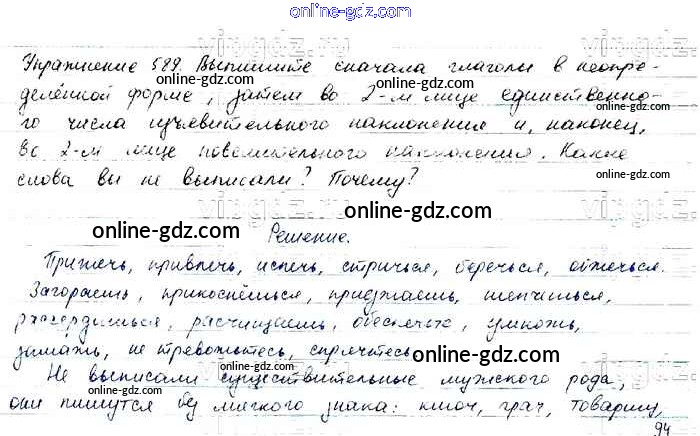 online-gdz.com
Упражнение 589. Выпишите сначала глаголы в неопре-
online-gdz.com online-gdz.com
делённой форме, затем во 2-м лице единственно-
го числа изъявительного наклонения и, наконец,
во 2-м лице повелительного наклонения. Какие
слова вы не выписали? Почему?
online-gdz.com
online-gdz.com
Решение.
Прижечь, привлечь, испечь, стричься, беречься, обжечься.
online-gdz.com online-gdz.com
Загораешь, прикоснёшься, приезжаешь, шепчешься,
рассердишься, расчищаешь, обеспечьте, умножь,
замажь, не тревожьтесь, спрячьтесь
online-gdz.com
Не выписали существительные мужского рода,
они пишутся без мягкого знака: ключ, грач, товарищ,
94